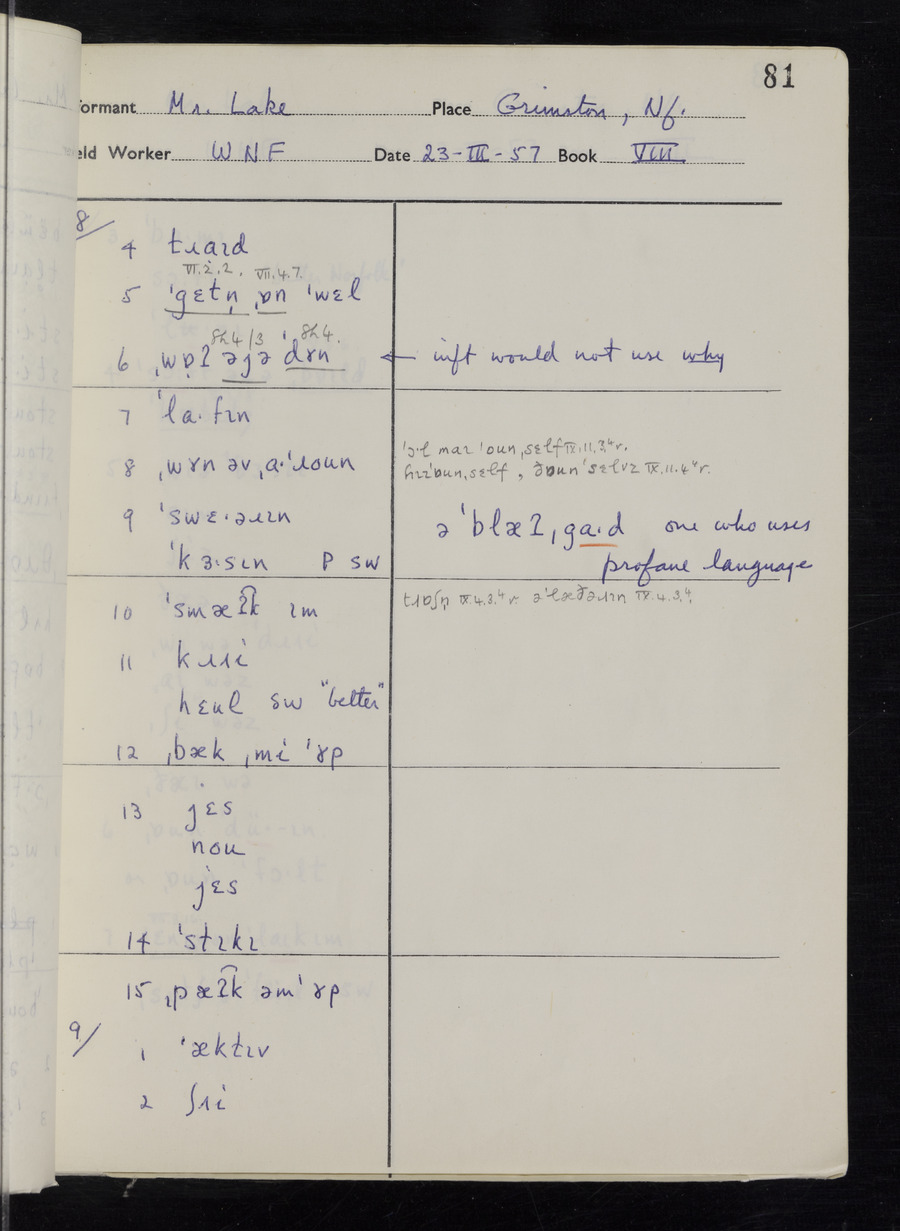 81
formant Mr. Lake Place Grimston, Nf.
eld Worker WNF Date 23-III-57 Book VIII
8/
4 tɹaɪd
VI.2.2. VII.4.7.
5 ˈgɛtn̩ ˌɒn ˈwɛl
8h4/3 8h4.
6 ˌwɒʔ əjə ˈdɤn ← inft would not use why
7 ˈla·fɪn
ˈə·l maɪ ˈoun,sɛlf IX.11.3,4 r.
8 ˌwɤn əv ˌa·ˈɹoun hɪzˈoun,sɛlf , ðounˈsɛlvz IX.11.4 r.
9 ˈswɛ·əɹɪn ə ˈblæʔˌga·d one who uses
ˈkɜ·sɪn P SW profane language
10 ˈsmæʔ͡k ɪm tɹɒʃn̩ IX.4.3,4 r. əˈlæðəɹɪn IX.4.3,4
11 kɹɹi
hɛul sw "better"
12 ˌbæk ˌmi ˈɤp
13 jɛs
nou
jɛs
14 ˈstɪkɪ
15 ˌpæʔ͡k əm ˈɤp
9/
1 ˈæktɪv
2 ʃɹi